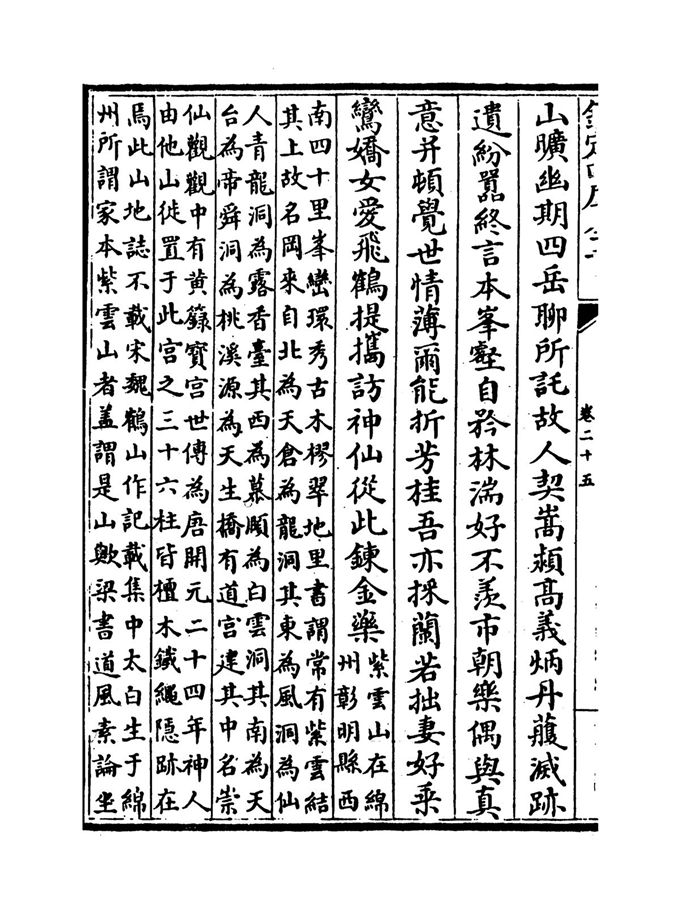 欽定四庫全書
卷二十五
山曠幽期四岳聊所託故人契嵩潁高義炳丹雘滅跡
遺紛囂終言本峯壑自矜林湍好不羨市朝樂偶與真
意并頓覺世情薄爾能折芳桂吾亦採蘭若拙妻好乘
鸞嬌女愛飛鶴提攜訪神仙從此鍊金藥
紫雲山在綿
州彰明縣西
南四十里峯巒環秀古木樛翠地里書謂常有紫雲結
其上故名岡來自北為天倉為龍洞其東為風洞為仙
人青龍洞為露香臺其西為蟇頤為白雲洞其南為天
台為帝舜洞為桃溪源為天生橋有道宫建其中名崇
仙觀觀中有黄籙寳宫世傳為唐開元二十四年神人
由他山徙置于此宫之三十六柱皆檀木鐵繩隱跡在
焉此山地誌不載宋魏鶴山作記載集中太白生于綿
州所謂家本紫雲山者盖謂是山歟梁書道風素論坐